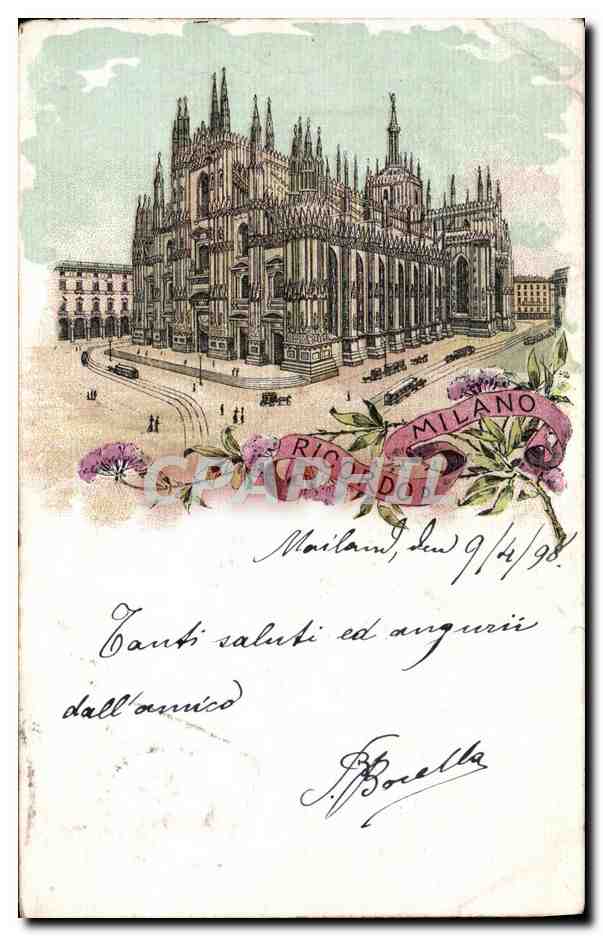 MILANO
RICORDO DI
CPARHTI
Mailand, den 9/4/98.
Tanti saluti ed augurii
dall'amico